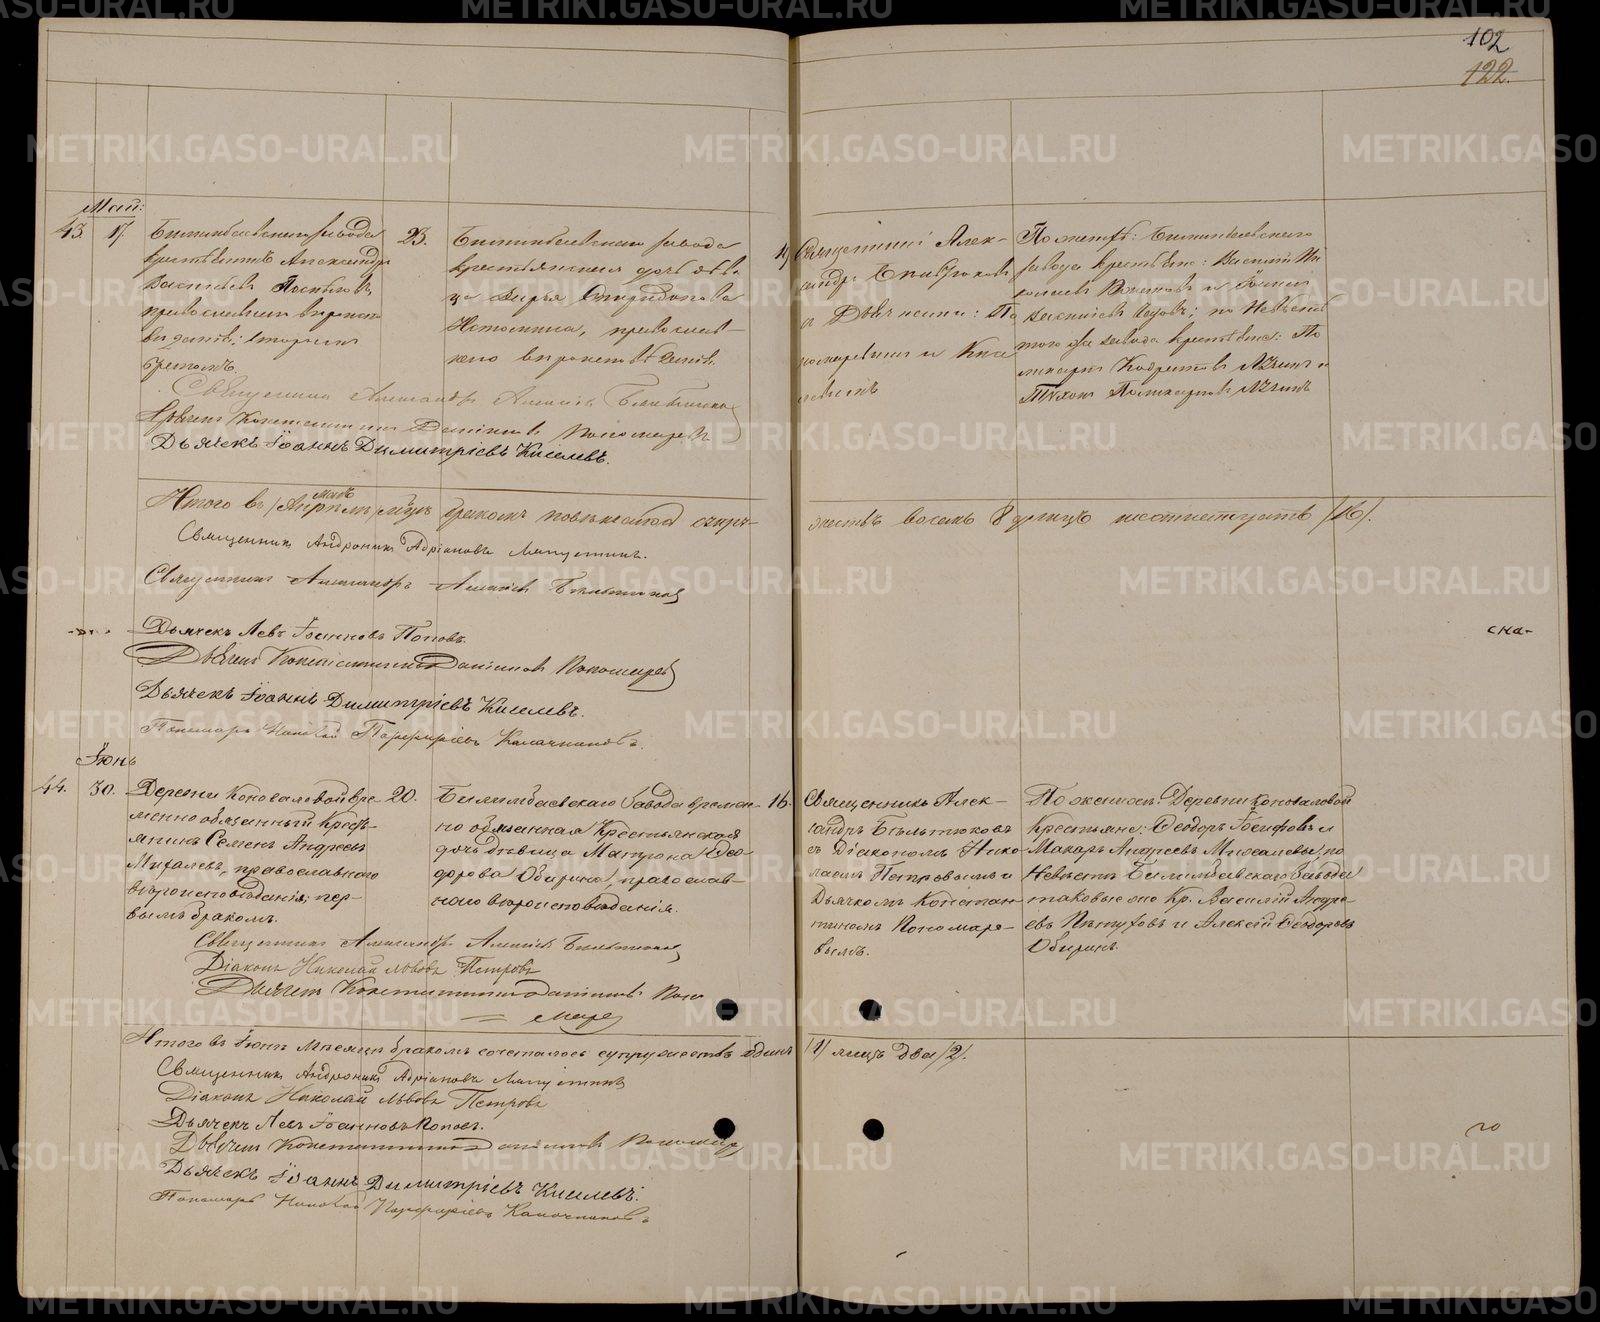 102
122.
Май:
43. 17.
Билимбаевскаго завода
крестьянинъ Александръ
Васильевъ
православнаго вѣроиспо
вѣданія; вторымъ
бракомъ.
23.
Билимбаевскаго завода
крестьянская дочь дѣви
ца Дарья Спиридонова
Истомина, православ-
наго вѣроисповѣданія.
19
Священникъ Алек-
сандръ Бѣльтюковъ
съ Дьячками: По
номаревымъ и Кисе
левымъ
По женихѣ: Билимбаевскаго
завода крестьяне: Василій Ни
колаевъ и
Васильевъ; по Невѣстѣ
того же завода крестьяне: По
ликарпъ и
Тихонъ Поликарповъ
Священникъ Александръ Алексіевъ Бѣльтюковъ
Дьячекъ Константинъ Даніиловъ Пономаревъ
Дьячекъ Іоаннъ Димитріевъ Киселевъ.
Итого въ /Апрѣлѣ/ маѣ мѣсяцѣ бракомъ повѣнчалось супру-
жествъ восемь 8 лицъ шестнатцать /16/.
Священникъ Андроникъ Адріановъ Мапустинъ.
Священникъ Александръ Алексіевъ Бѣльтюковъ
Дьячекъ Левъ Іоанновъ Поповъ.
Дьячекъ Константинъ Даніиловъ Пономаревъ
Дьячекъ Іоаннъ Димитріевъ Киселевъ.
Пономарь Николай Порфиріевъ Калачниковъ.
ска-
Іюнь
44. 30.
Деревни Коноваловой вре
менно обязанный Крест-
янинъ Семенъ Андреевъ
Михалевъ, православнаго
вѣроисповѣданія, пер-
вымъ бракомъ.
20.
Билимбаевскаго Завода времен-
но обязанная Крестьянская
дочь дѣвица Матрона Ѳео-
дорова Обирина, православ-
наго вѣроисповѣданія.
16.
Священникъ Алек-
сандръ Бѣльтюковъ
съ Діакономъ Нико
лаемъ Петровымъ и
Дьячкомъ Констан
тиномъ Пономаре-
вымъ.
По женихѣ: Деревни Коноваловой
Крестьяне: Ѳеодоръ Іосифовъ и
Макаръ Андреевъ Михалевы, по
Невѣстѣ Билимбаевскаго Завода
таковые же Кр. Василій Андре
евъ Пѣтуховъ и Алексѣй Ѳеодоровъ
Обиринъ.
Священникъ Александръ Алексіевъ Бѣльтюковъ
Діаконъ Николай Львовъ Петровъ
Дьячекъ Константинъ Даніиловъ Поно
маревъ
Итого въ Іюнѣ Мѣсяцѣ бракомъ сочеталось супружествъ одинъ /1/ лицъ два /2/.
Священникъ Андроникъ Адріановъ Мапустинъ
Діаконъ Николай Львовъ Петровъ
Дьячекъ Левъ Іоанновъ Поповъ.
Дьячекъ Константинъ Даніиловъ Пономаревъ
Дьячекъ Іоаннъ Димитріевъ Киселевъ.
Пономарь Николай Порфиріевъ Калачниковъ
го